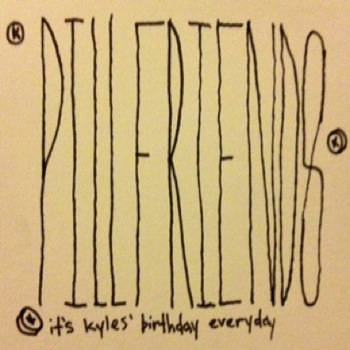 K
PILLFRIENDS
K
K it's kyles' birthday everyday